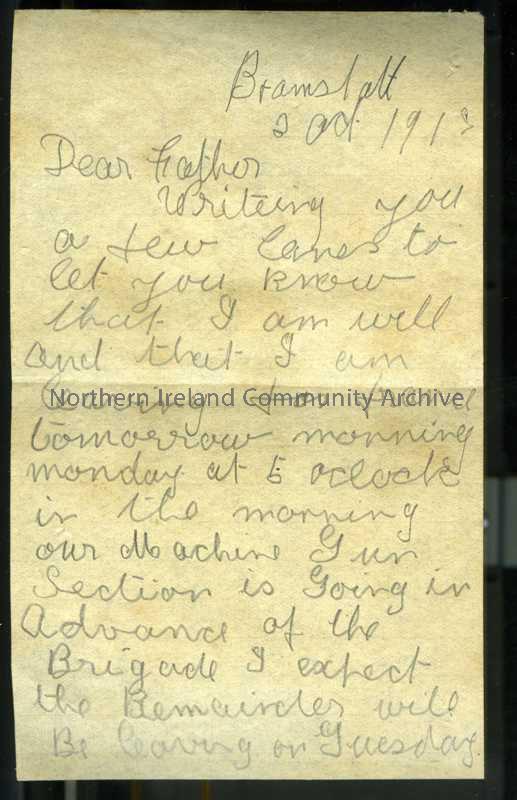 Bramshott
3 Oct 1915
Dear Father
Writeing you
a few lanes to
let you know
that I am well
and that I am
leaving for
Northern Ireland Community Archive
tomorrow morning
monday at 5 oclock
in the morning
our Machine Gun
Section is Going in
Advance of the
Brigade I expect
the Remainder will
Be leaving on Tuesday